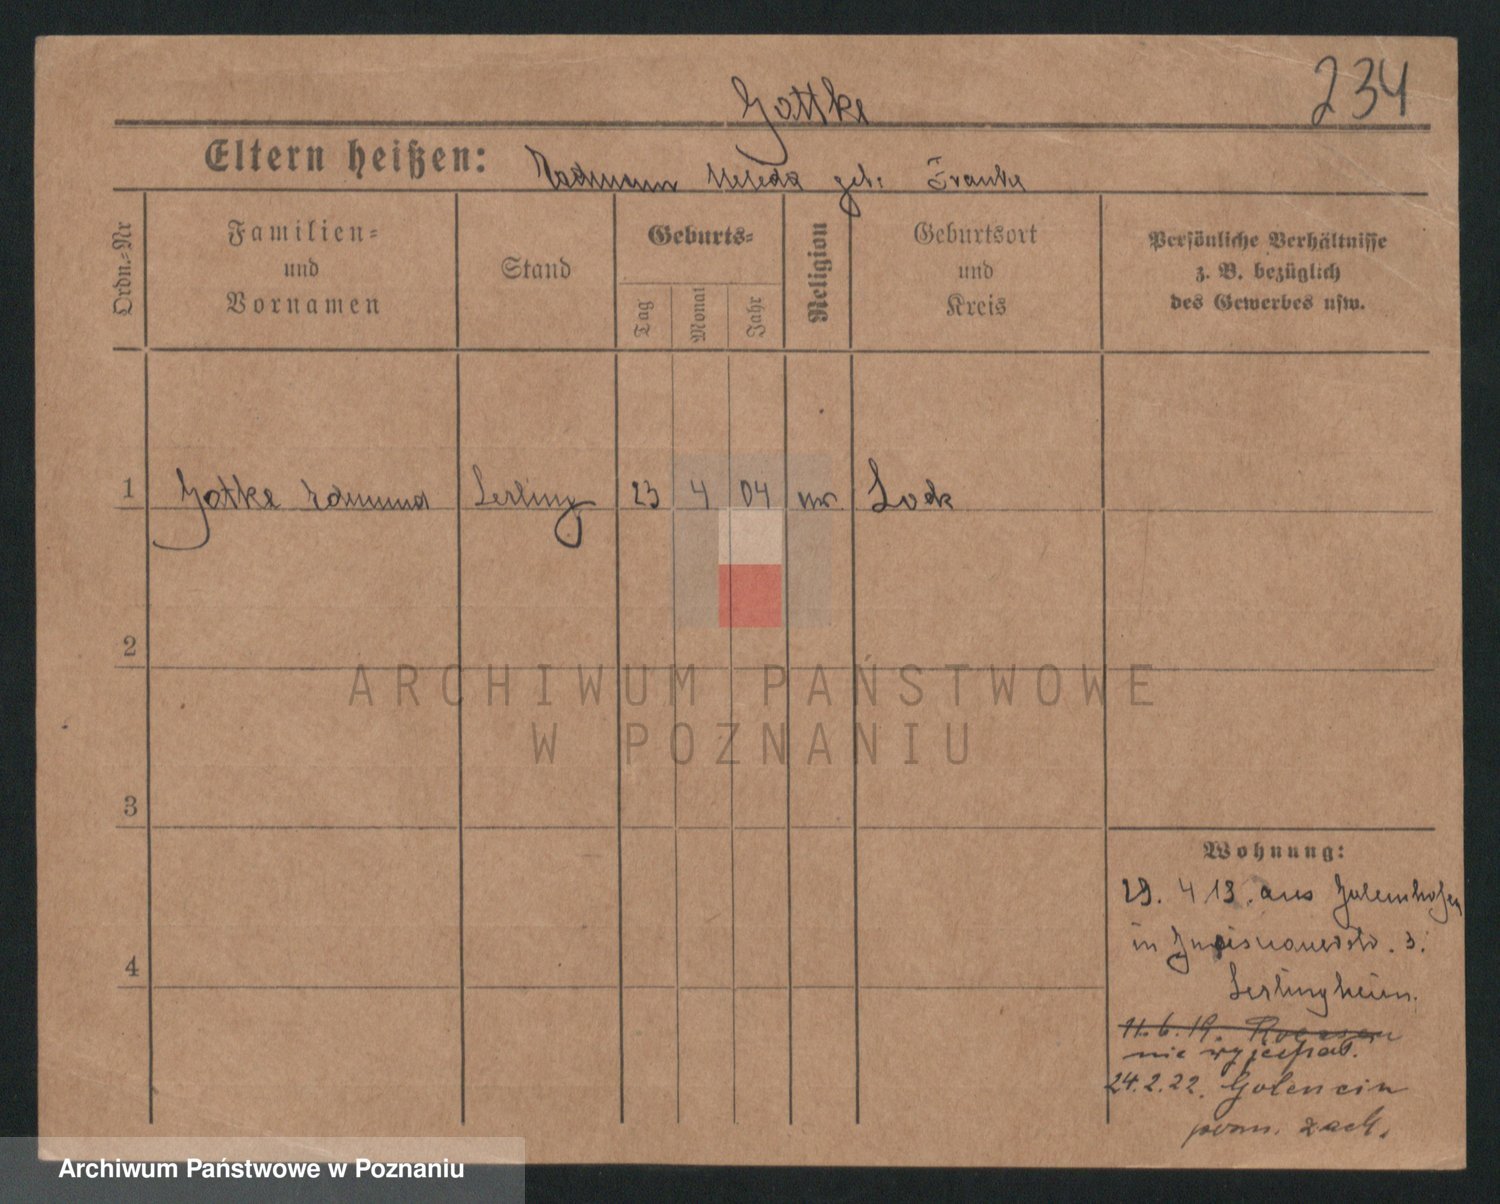 234
Gottke
Eltern heißen: geb. Franke
Ordn.-Nr
Familien-
und
Vornamen
Stand
Geburts-
Tag
Monat
Jahr
Religion
Geburtsort
und
Kreis
Persönliche Verhältnisse
z. B. bezüglich
des Gewerbes usw.
1 Gottke Edmund 23 4 04
2
ARCHIWUM PAŃSTWOWE
W POZNANIU
3
Wohnung:
29. 4 13. aus
in 3.
4
11. 6. 19.
nie wyjechał.
24.2.22. Golencin
pow. zach.
Archiwum Państwowe w Poznaniu